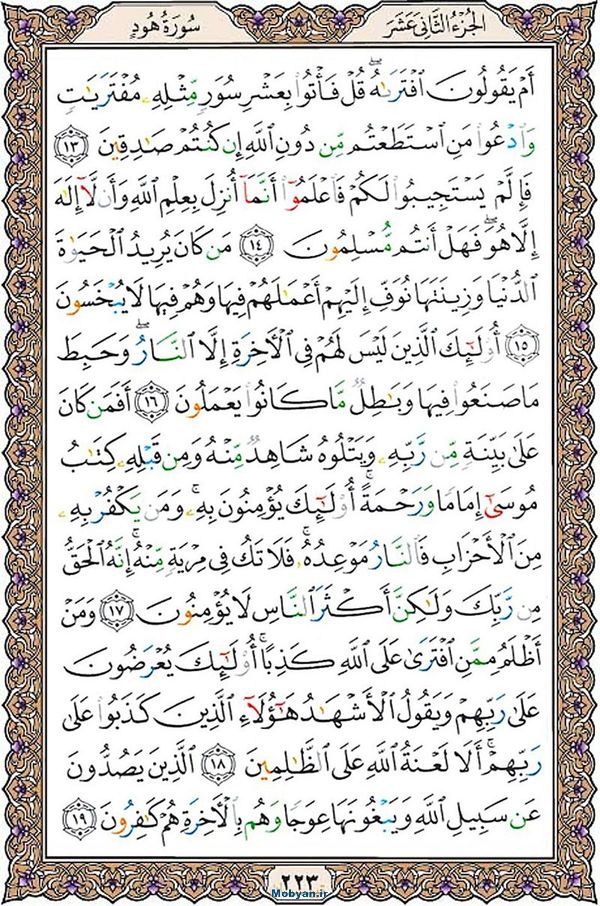 سُورَةُ هُودٍ
الجُزءُ الثَّانِي عَشَرَ
أَمْ يَقُولُونَ افْتَرَىٰهُ ۖ قُلْ فَأْتُوا بِعَشْرِ سُوَرٍ مِّثْلِهِ مُفْتَرَيَاتٍ
وَادْعُوا مَنِ اسْتَطَعْتُم مِّن دُونِ اللَّهِ إِن كُنتُمْ صَادِقِينَ ١٣
فَإِلَّمْ يَسْتَجِيبُوا لَكُمْ فَاعْلَمُوا أَنَّمَا أُنزِلَ بِعِلْمِ اللَّهِ وَأَن لَّا إِلَٰهَ
إِلَّا هُوَ ۖ فَهَلْ أَنتُم مُّسْلِمُونَ ١٤ مَن كَانَ يُرِيدُ الْحَيَوٰةَ
الدُّنْيَا وَزِينَتَهَا نُوَفِّ إِلَيْهِمْ أَعْمَٰلَهُمْ فِيهَا وَهُمْ فِيهَا لَا يُبْخَسُونَ
١٥ أُولَٰئِكَ الَّذِينَ لَيْسَ لَهُمْ فِي الْآخِرَةِ إِلَّا النَّارُ ۖ وَحَبِطَ
مَا صَنَعُوا فِيهَا وَبَٰطِلٌ مَّا كَانُوا يَعْمَلُونَ ١٦ أَفَمَن كَانَ
عَلَىٰ بَيِّنَةٍ مِّن رَّبِّهِ وَيَتْلُوهُ شَاهِدٌ مِّنْهُ وَمِن قَبْلِهِ كِتَٰبُ
مُوسَىٰ إِمَامًا وَرَحْمَةً ۚ أُولَٰئِكَ يُؤْمِنُونَ بِهِ ۚ وَمَن يَكْفُرْ بِهِ
مِنَ الْأَحْزَابِ فَالنَّارُ مَوْعِدُهُ ۚ فَلَا تَكُ فِي مِرْيَةٍ مِّنْهُ ۚ إِنَّهُ الْحَقُّ
مِن رَّبِّكَ وَلَٰكِنَّ أَكْثَرَ النَّاسِ لَا يُؤْمِنُونَ ١٧ وَمَنْ
أَظْلَمُ مِمَّنِ افْتَرَىٰ عَلَى اللَّهِ كَذِبًا ۚ أُولَٰئِكَ يُعْرَضُونَ
عَلَىٰ رَبِّهِمْ وَيَقُولُ الْأَشْهَادُ هَٰؤُلَاءِ الَّذِينَ كَذَبُوا عَلَىٰ
رَبِّهِمْ ۚ أَلَا لَعْنَةُ اللَّهِ عَلَى الظَّالِمِينَ ١٨ الَّذِينَ يَصُدُّونَ
عَن سَبِيلِ اللَّهِ وَيَبْغُونَهَا عِوَجًا وَهُم بِالْآخِرَةِ هُمْ كَٰفِرُونَ ١٩
٢٢٣
Mobyan.ir